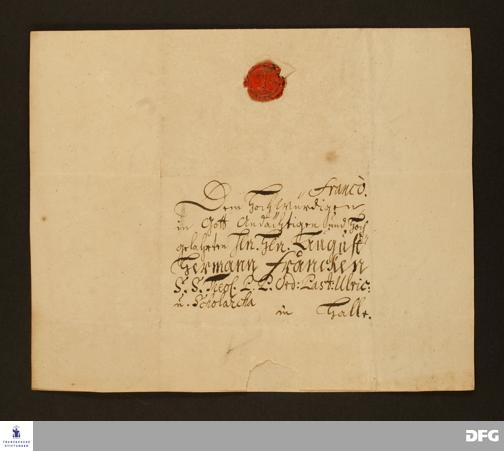 Francò.
Dem Hoch Würdigen
in Gott Andächtigen und Hoch
gelahrten Hn. Hn. August
Hermann Francken
S. S. Theol. P. P. Ord: Past: Ulric.
u. Scholarcha
in Halle.
FRANCKESCHE
STIFTUNGEN
DFG